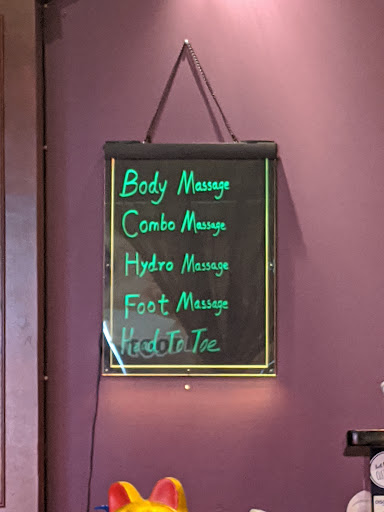 Body Massage
Combo Massage
Hydro Massage
Foot Massage
Head To Toe